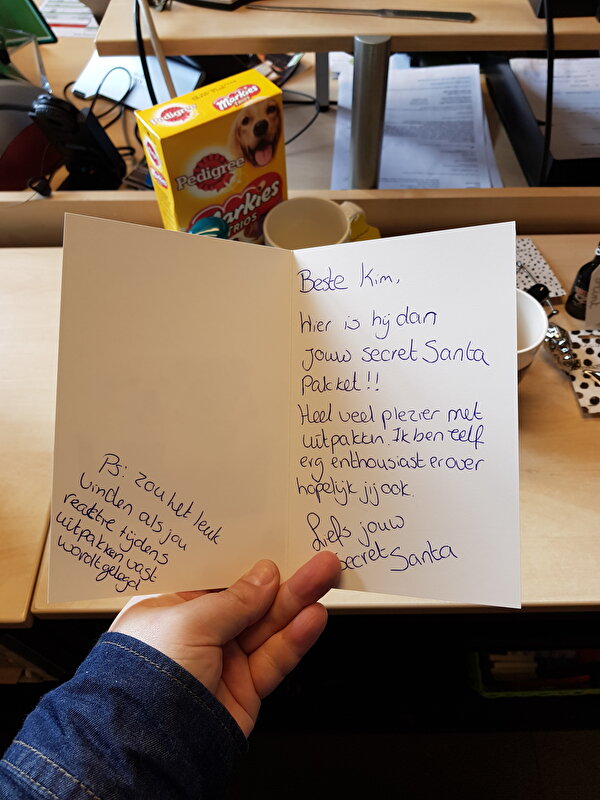 Markies
Pedigree
Pedigree
Markies
TRIOS
Beste Kim,
Hier is hij dan
jouw secret Santa
Pakket!!
Heel veel plezier met
uitpakken. Ik ben zelf
erg enthousiast erover
hopelijk jij ook.
Liefs jouw
Secret Santa
Ps: zou het leuk
vinden als jou
reactie tijdens
uitpakken vast
wordt gelegd